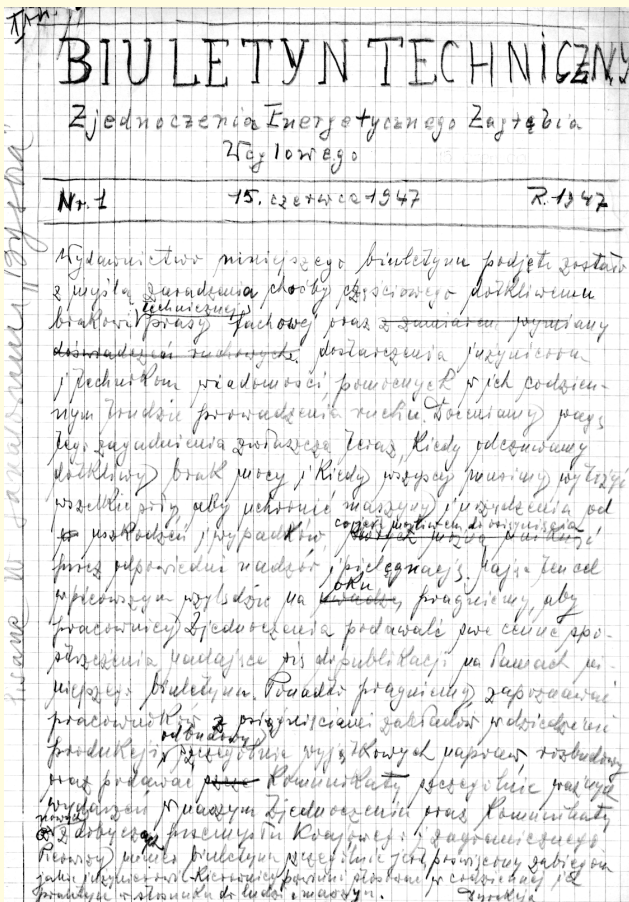 BIULETYN TECHNICZNY
Zjednoczenia Energetycznego Zagłębia
Węglowego
Nr. 1 15. czerwca 1947 R. 1947
Wydawnictwo niniejszego biuletynu podjęte zostało
z myślą zaradzenia choćby częściowego dotkliwemu
technicznej
brakowi prasy fachowej oraz z zamiarem wymiany
doświadczeń ruchowych dostarczenia inżynierom
i technikom wiadomości pomocnych w ich codzien-
nym trudzie prowadzenia ruchu. Doceniamy wagę
tego zagadnienia zwłaszcza teraz, kiedy odczuwamy
dotkliwy brak mocy i kiedy wszyscy musimy wytężyć
wszelkie siły aby uchronić maszyny i urządzenia od
uszkodzeń i wypadków,
przez odpowiedni nadzór i pielęgnację. Mając ten cel
oku
w pierwszym względzie na pragniemy, aby
pracownicy Zjednoczenia podawali swe cenne spo-
strzeżenia nadające się do publikacji na łamach ni-
niejszego biuletynu. Ponadto pragniemy zapoznawać
pracowników z osiągnięciami zakładów w dziedzinie
odbudowy
produkcji, szczególnie wyjątkowych napraw, rozbudowy
oraz podawać komunikaty szczególnie ważnych
wydarzeń w naszym Zjednoczeniu oraz komunikaty
nowych
o zdobyczach przemysłu krajowego i zagranicznego
Pierwszy numer biuletynu szczególnie jest poświęcony zabiegom
jakie inżynierowie i kierownicy powinni stosować w codziennej ich
praktyce w stosunku do ludzi i maszyn. Dyrekcja
Pisane w sanatorium "Bystra"